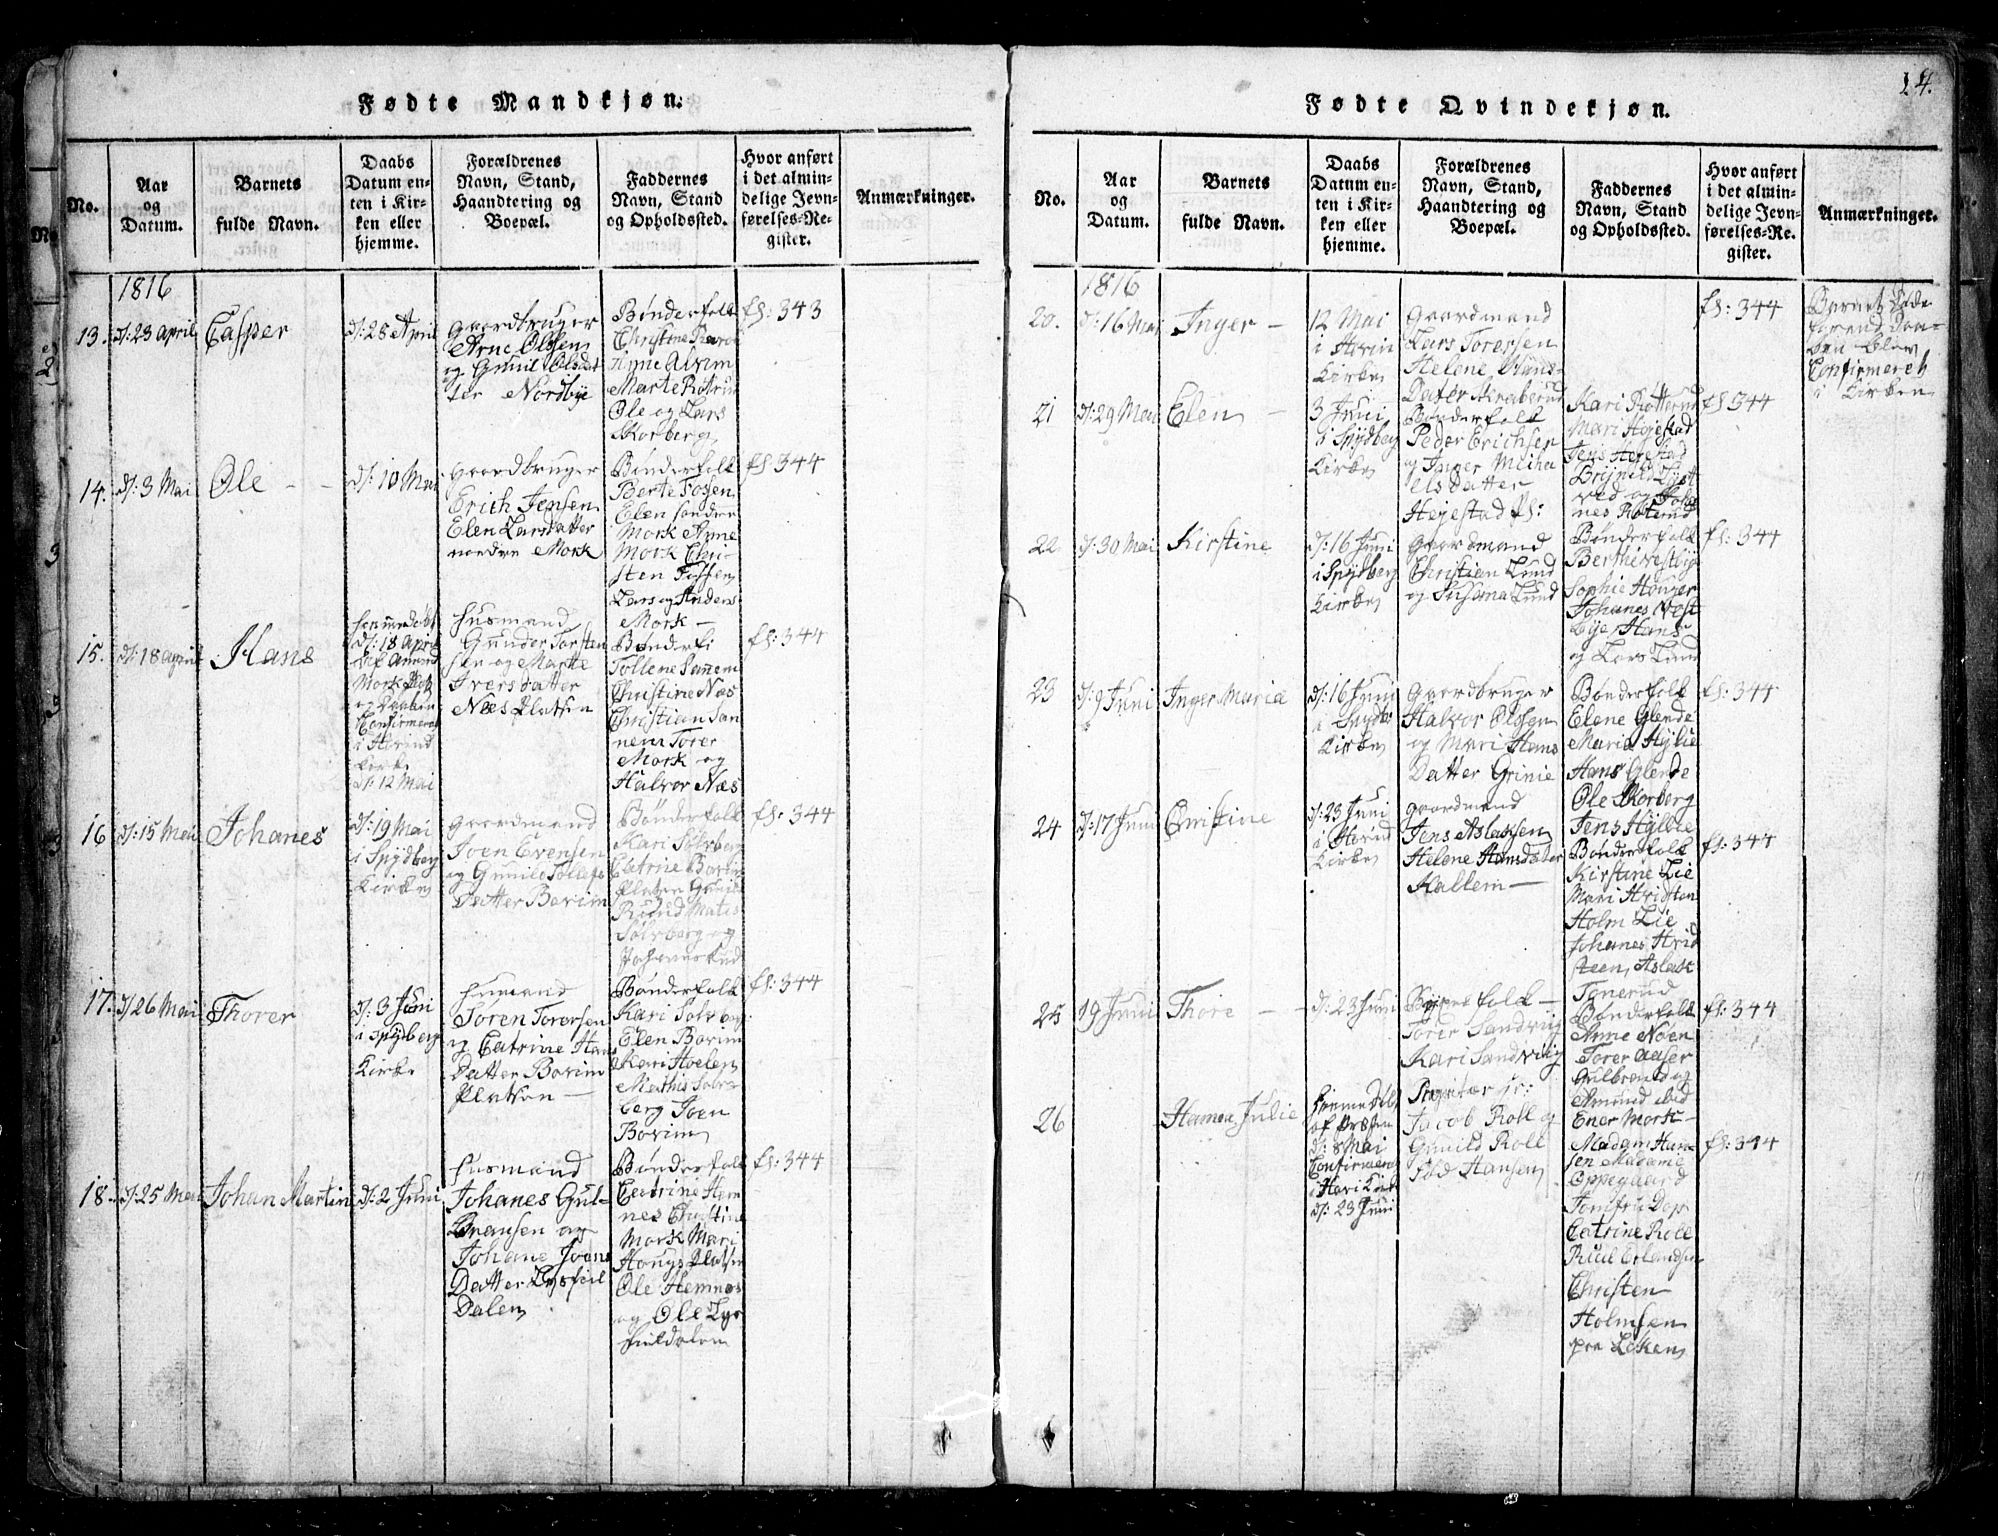 14.
Fødte Mandkjøn.
No.
Aar
og
Datum.
Barnets
fulde Navn.
Daabs
Datum en-
ten i Kir-
ken eller
hjemme.
Forældrenes
Navn, Stand,
Haandtering og
Boepæl.
Faddernes
Navn, Stand
og Opholdssted.
Hvor anført
i det almin-
delige Jevn-
førelses-Re-
gister.
Anmærkninger.
1816
13. d: 23 April
Casper
d: 28 April
Gaardbruger
Arne Olssen
og Gunil Olsdat
ter Nordbye
Bønderfolk
Christine
Anne
Marte
Ole og Lars
Skorberg
fl: 343
14. d: 3 Mai
Ole
d: 10 Mai
Gaardbruger
Erich Jensen
Elen Larsdatter
nordre Mork
Bønderfolk
Berte Fossen
Elen søndre
Mork Anne
Mork Chri-
sten Fossen
Lars og Anders
Mork
fl: 344
15. d: 18 April
Hans
hjemmedøbt
d: 18 April
af Amund
Mork
og Daaben
Confirmeret
i Hovind
Kirke
d: 12 Mai
Husmand
Gunder Torsten
sen og Marte
Iversdatter
Næs Platsen
Tollene Sannem
Christine Næs
Christian San
nem Torer
Mork og
Halvor Næs
fl: 344
16 d: 15 Mai
Johanes
d: 19 Mai
i Spydberg
Kirken
Gaardmand
Joen Evensen
og Gunild Tollefs
Datter Bovim
Bønderfolk
Kari Solberg
Catrine Bovim
Platsen
Ruud Matis
Solberg og
fl: 344
17. d: 26 Mai
Thorer
d: 3 Juni
i Spydberg
Kirke
Husmand
Toren Torersen
og Catrine Hans
Datter Bovim
Platsen
Bønderfolk
Kari Solberg
Elen Bovim
Kari Hoelen
Mathis Sol-
berg Joen
Bovim
fl: 344
18. d: 25 Mai
Johan Martin
d: 2 Juni
Husmand
Johanes Gul-
bransen og
Johane Joens
Datter Lysfiel
Dalen
Bønderfolk
Catrine Hem
nes Christine
Mork Mari
Platsen
Ole Hemnes
og Ole Lys
fieldalen
fl: 344
Fødte Qvindekjøn.
No.
Aar
og
Datum.
Barnets
fulde Navn.
Daabs
Datum en-
ten i Kir-
ken eller
hjemme.
Forældrenes
Navn, Stand,
Haandtering og
Boepæl.
Faddernes
Navn, Stand
og Opholdssted.
Hvor anført
i det almin-
delige Jevn-
førelses-Re-
gister.
Anmærkninger.
1816
20. d: 16 Mai
Inger
12 Mai
i Hovin
Kirken
Gaardmand
Lars Torersen
Helene Hans-
Dater
fl: 344
Barnets
Daa-
ben blev
Confirmeret
i Kirken
21 d: 29 Mai
Elen
3 Juni
i Spydberg
Kirken
Bønderfolk
Peder Erichsen
og Inger Micha
elsdatter
Høyestad
Kari Rotterud
Mari Høyestad
Jens Høyestad
Brynild
ved og Joha
nes Roterud
fl: 344
22 d: 30 Mai
Kirstine
d: 16 Juni
i Spydberg
Kirken
Gaardmand
Christian Lund
og Susana Lund
Bønderfolk
Berthe Vestbye
Sophie
Johanes Vest
bye Hans
og Lars Lund
fl: 344
23 d: 9 Juni
Inger Maria
d: 16 Juni
i Spydberg
Kirken
Gaardbruger
Halvor Olssen
og Mari Hans
Datter Grinie
Bønderfolk
Elene Glende
Maria Hylie
Hans Glende
Ole Skorberg
Jens Hyllie
fl: 344
24 d: 17 Juni
Christine
d: 23 Juni
i Hovind
Kirken
Gaardmand
Jens Aslassen
Helene Hansdater
Kallem
Bønderfolk
Kirstine Lie
Mari Hvidsten
Holm Lie
Johanes Hvid
steen, Aslak
Tonerud
fl: 344
25 19 Juni
Thore
d: 23 Juni
Torer Sandvig
Kari Sandvig
Bønderfolk
Anne Noen
Torer Aaser
Gulbrand og
Amund ibid
Ener Mork
fl: 344
26
Hanna Julie
hjemmedøbt
d: 8 Mai
Confirmeret
d: 23 Juni
Jacob Roll og
Gunild Roll
fød Hansen
Madam Han
sen Madame
Oppegaard
Jomfru
Catrine Roll
Poul Erlandsen
Christen
Holmsen
paa Leken
fl: 344